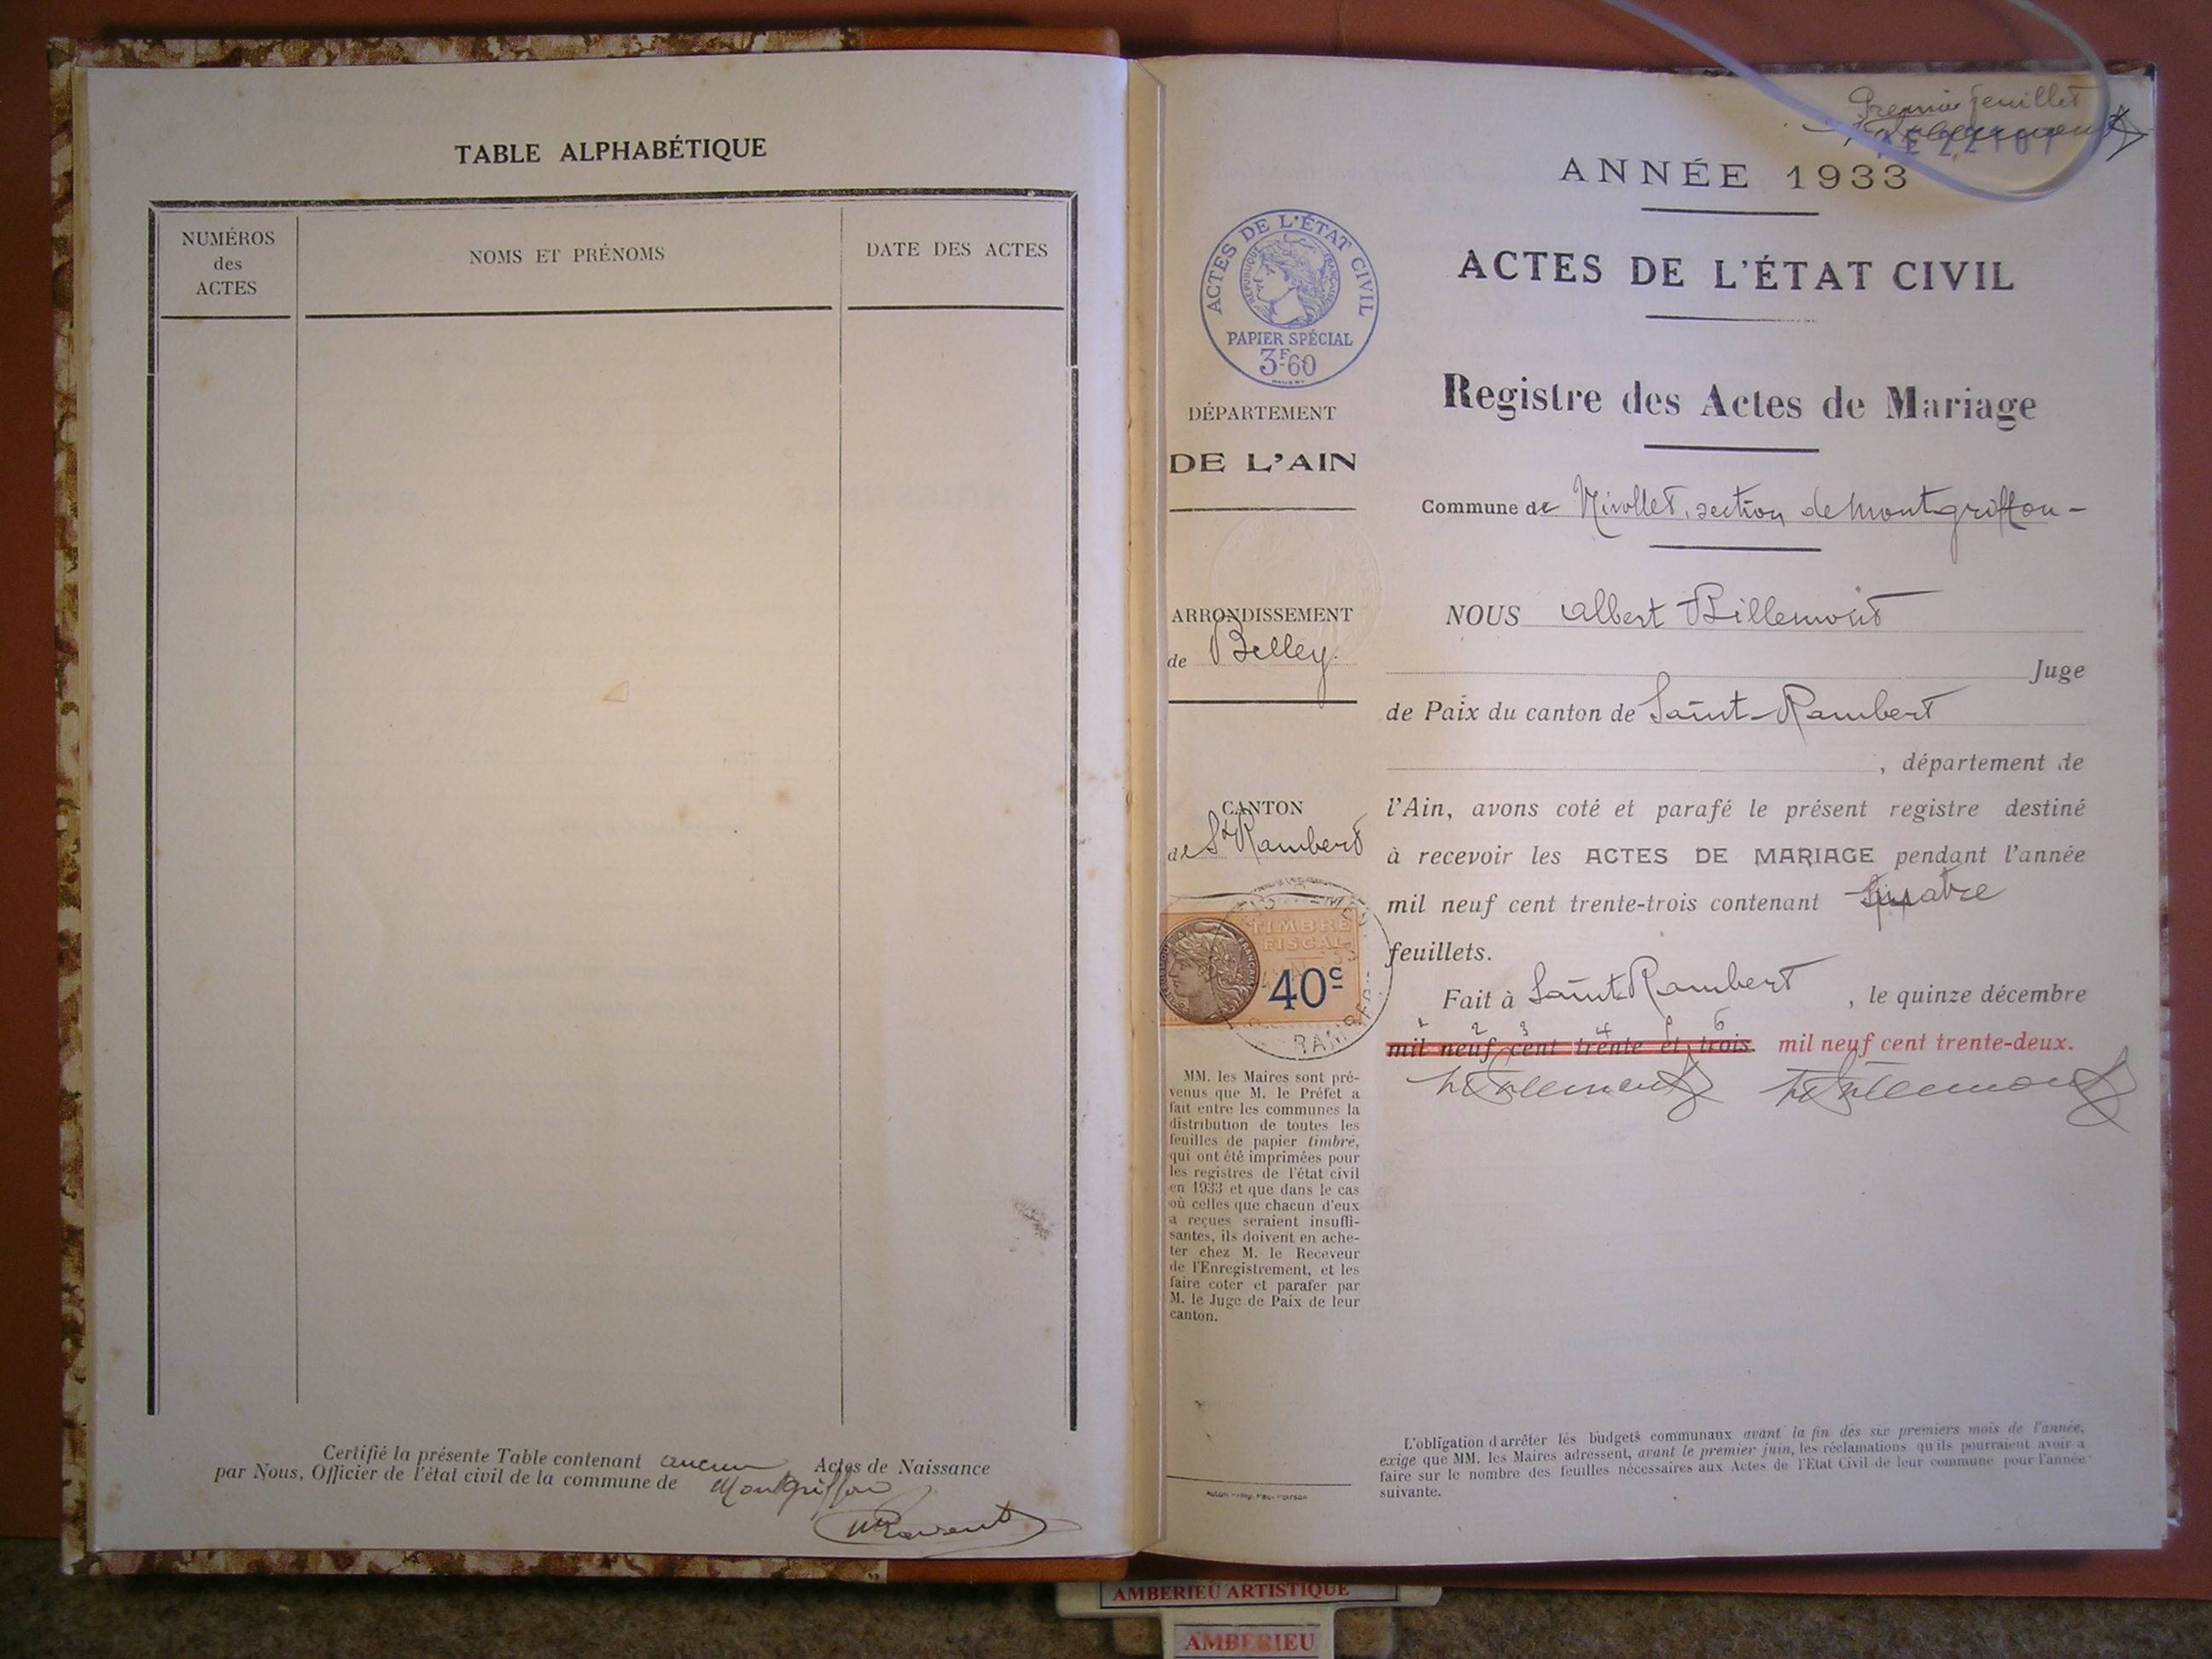 TABLE ALPHABÉTIQUE
NUMÉROS
des
ACTES
NOMS ET PRÉNOMS
DATE DES ACTES
Certifié la présente Table contenant aucun Actes de Naissance
par Nous, Officier de l'état civil de la commune de Montgriffon
Premier feuillet
ANNÉE 1933
ACTES DE L'ÉTAT CIVIL
RÉPUBLIQUE FRANÇAISE
PAPIER SPÉCIAL
3F60
ACTES DE L'ÉTAT CIVIL
Registre des Actes de Mariage
DÉPARTEMENT
DE L'AIN
Commune de Nivollet, section de Montgriffon -
ARRONDISSEMENT
de Belley.
NOUS Albert Billemont
Juge
de Paix du canton de Saint-Rambert
, département de
CANTON
de St Rambert
l'Ain, avons coté et parafé le présent registre destiné
à recevoir les ACTES DE MARIAGE pendant l'année
mil neuf cent trente-trois contenant quatre
feuillets.
TIMBRE
FISCAL
40c
Fait à Saint-Rambert , le quinze décembre
1 2 3 4 5 6
mil neuf cent trente et trois. mil neuf cent trente-deux.
MM. les Maires sont pré-
venus que M. le Préfet a
fait entre les communes la
distribution de toutes les
feuilles de papier timbré,
qui ont été imprimées pour
les registres de l'état civil
en 1933 et que dans le cas
où celles que chacun d'eux
a reçues seraient insuffi-
santes, ils doivent en ache-
ter chez M. le Receveur
de l'Enregistrement, et les
faire coter et parafer par
M. le Juge de Paix de leur
canton.
L'obligation d'arrêter les budgets communaux avant la fin des six premiers mois de l'année,
exige que MM. les Maires adressent, avant le premier juin, les réclamations qu'ils pourraient avoir à
faire sur le nombre des feuilles nécessaires aux Actes de l'Etat Civil de leur commune pour l'année
suivante.
AMBERIEU ARTISTIQUE
AMBERIEU